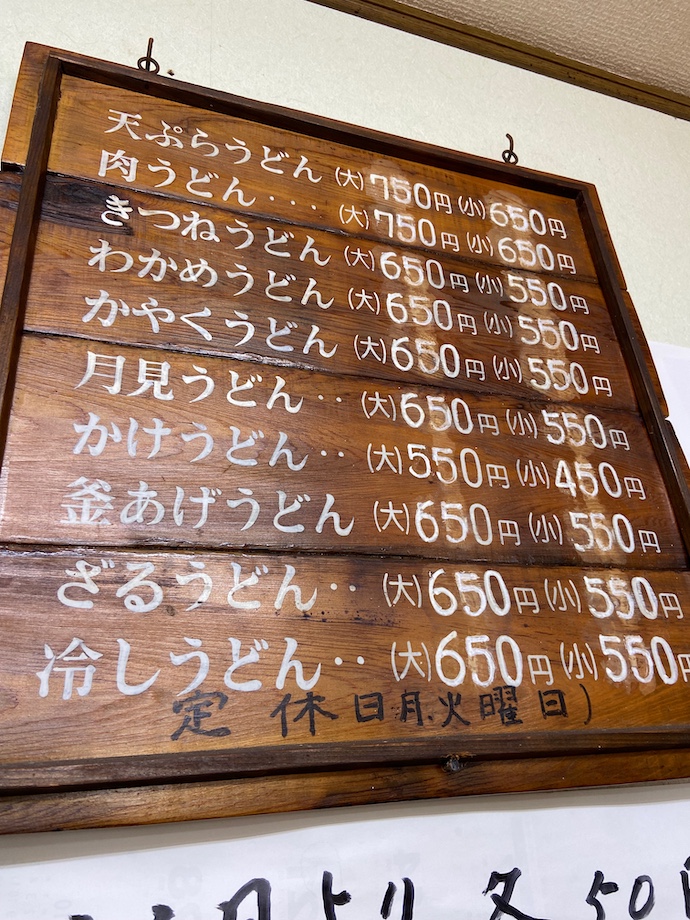 天ぷらうどん (大)750円(小)650円
肉うどん・・・(大)750円(小)650円
きつねうどん(大)650円(小)550円
わかめうどん(大)650円(小)550円
かやくうどん(大)650円(小)550円
月見うどん・・(大)650円(小)550円
かけうどん・・(大)550円(小)450円
釜あげうどん(大)650円(小)550円
ざるうどん・・(大)650円(小)550円
冷しうどん・・(大)650円(小)550円
定休日月、火曜日)
月より各50円